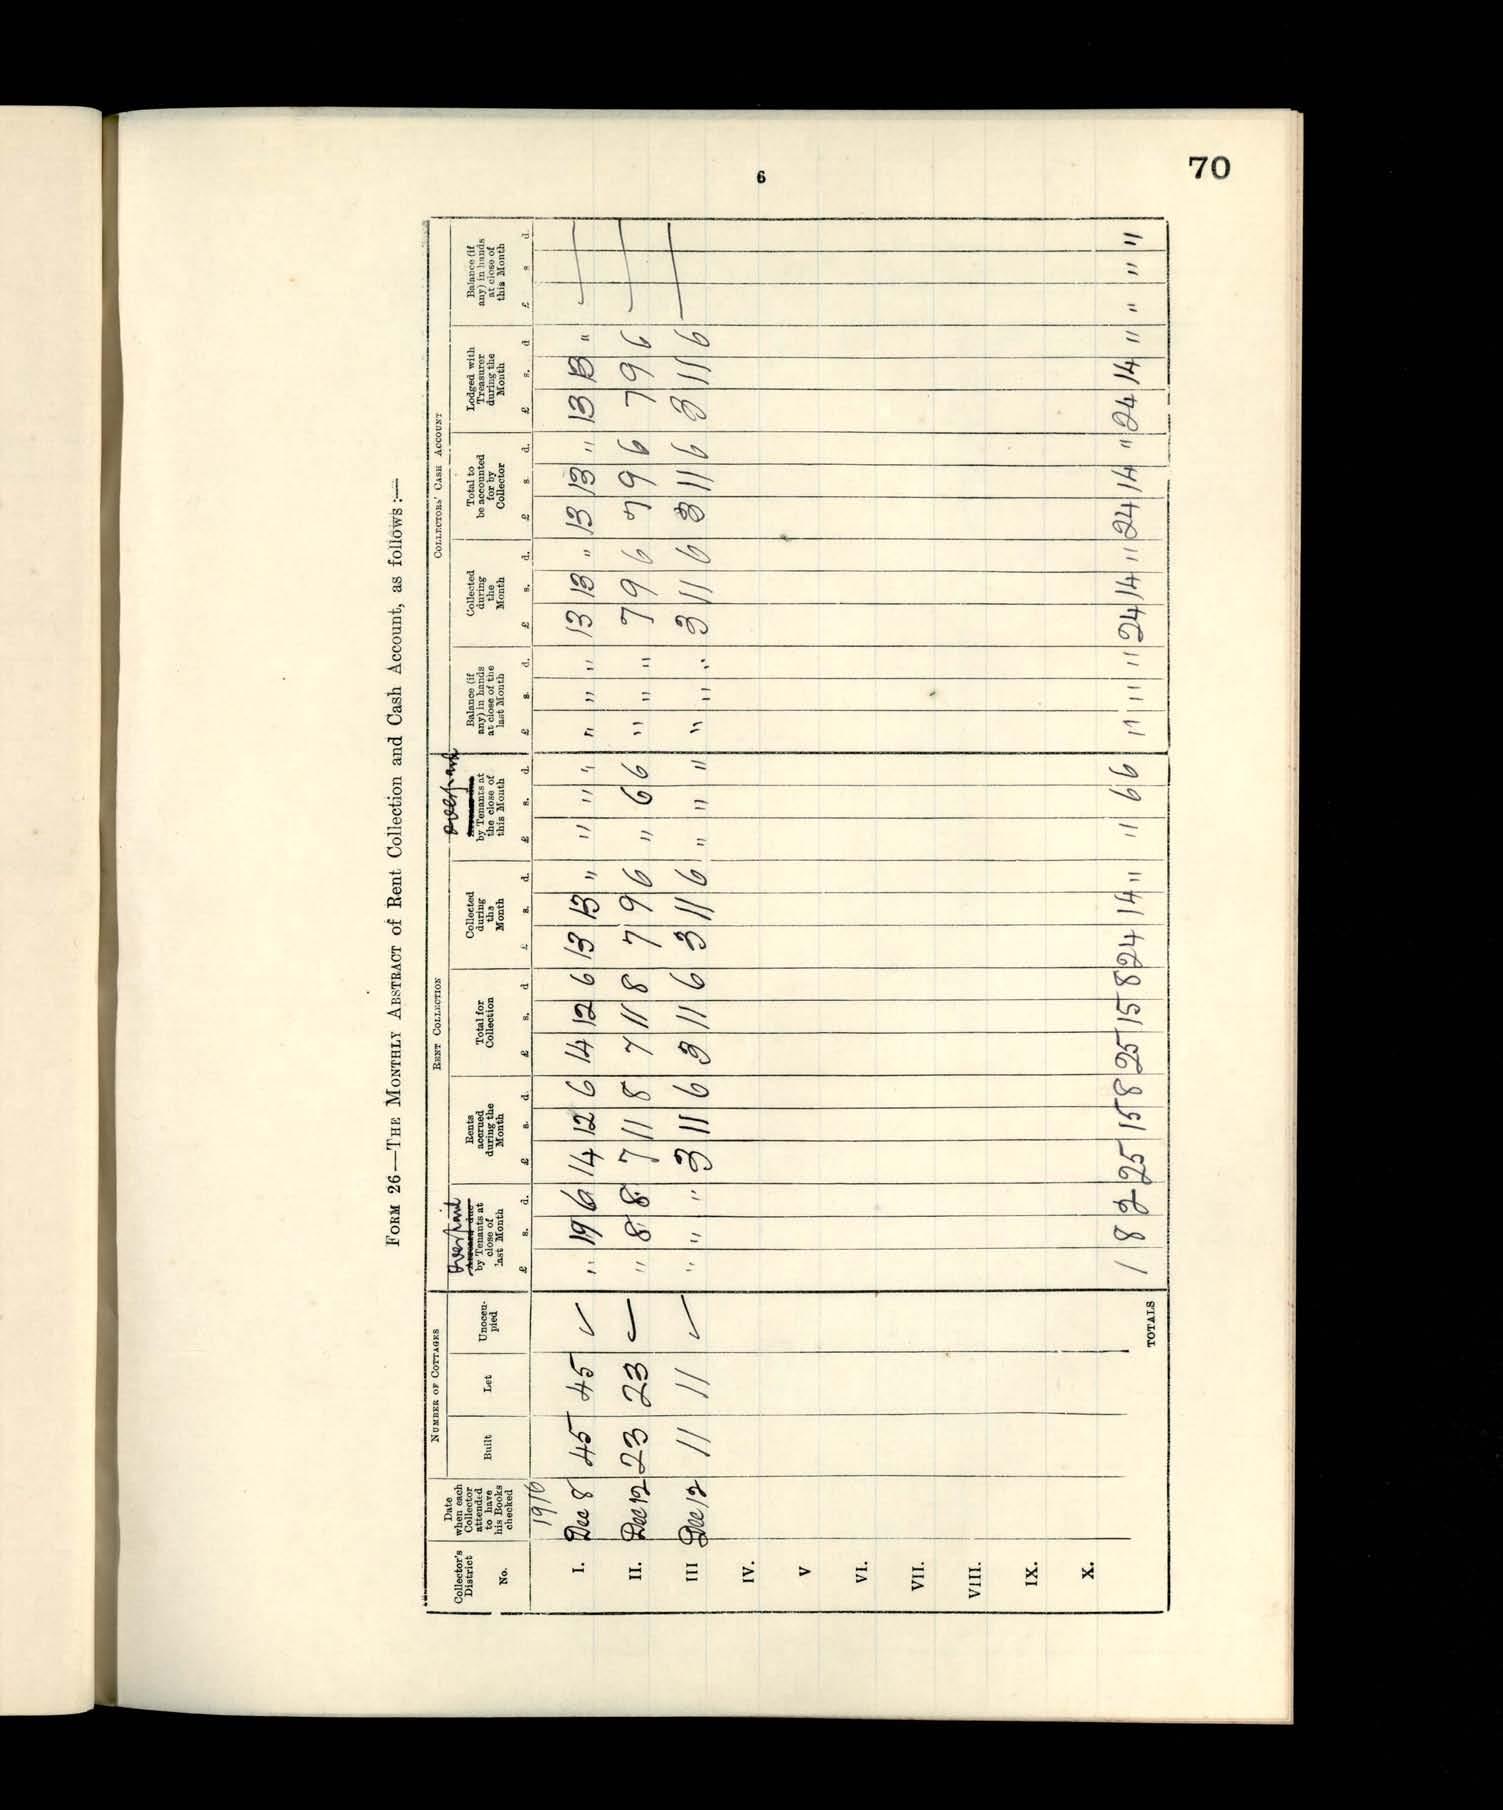 70
6
FORM 26—THE MONTHLY ABSTRACT of Rent Collection and Cash Account, as follows:—
NUMBER OF COTTAGES RENT COLLECTION COLLECTORS' CASH ACCOUNT
Collector's District No. Date when each Collector attended to have his Books checked Built Let Unoccu-pied Overpaid by Tenants at close of last Month Rents accrued during the Month Total for Collection Collected during the Month Overpaid by Tenants at the close of this Month Balance (if any) in hands at close of the last Month Collected during the Month Total to be accounted for by Collector Lodged with Treasurer during the Month Balance (if any) in hands at close of this Month
£ s. d. £ s. d. £ s. d. £ s. d. £ s. d. £ s. d. £ s. d. £ s. d. £ s. d. £ s d.
1916
I. Dec 8 45 45 " 19 6 14 12 6 14 12 6 13 13 " " " " " " " 13 13 " 13 13 " 13 13 "
II. Dec 12 23 23 " 8 8 7 11 8 7 11 8 7 9 6 " 6 6 " " " 7 9 6 7 9 6 7 9 6
III Dec 12 11 11 " " " 3 11 6 3 11 6 3 11 6 " " " " " " 3 11 6 3 11 6 3 11 6
IV.
V
VI.
VII.
VIII.
IX.
X.
TOTALS 1 8 2 25 15 8 25 15 8 24 14 " " 6 6 " " " 24 14 " 24 14 " 24 14 " " " "